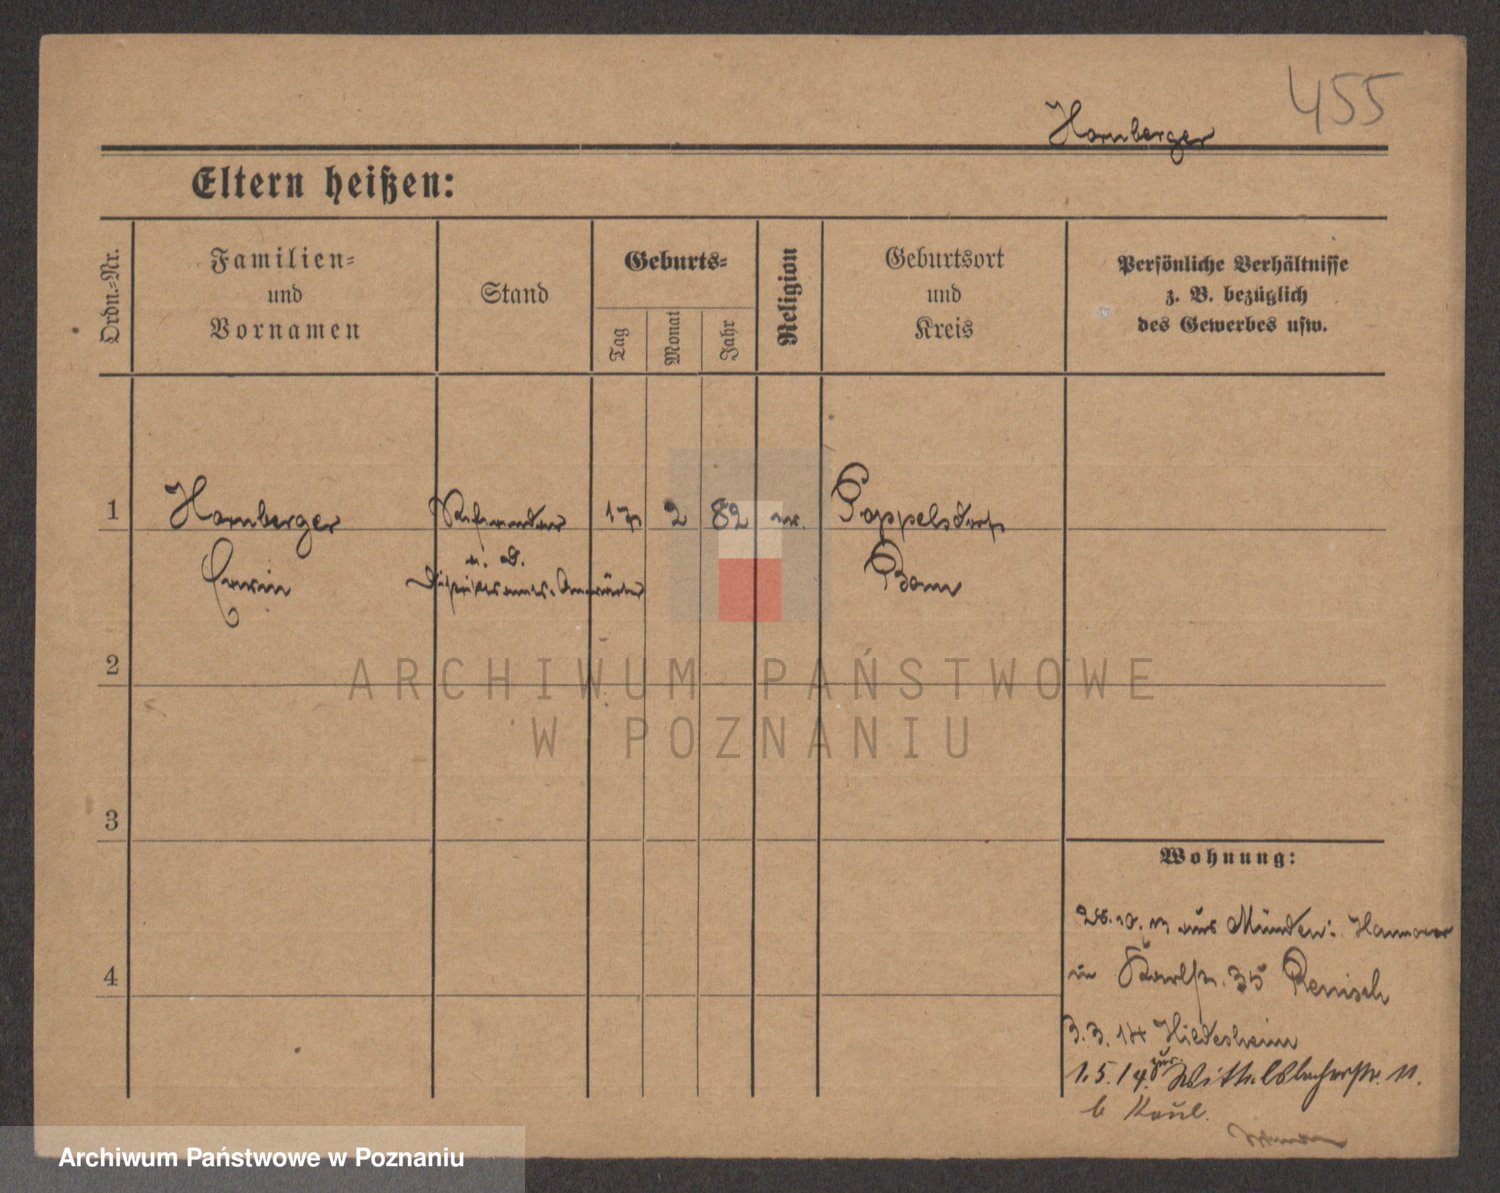 455
Hornberger
Eltern heißen:
Ordn.-Nr.
Familien-
und
Vornamen
Stand
Geburts-
Tag
Monat
Jahr
Religion
Geburtsort
und
Kreis
Persönliche Verhältnisse
z. B. bezüglich
des Gewerbes usw.
1
Hornberger
Referendar
17
2
82
Poppelsdorf
Erwin
a. D.
Bonn
2
ARCHIWUM PAŃSTWOWE
W POZNANIU
3
4
Wohnung:
28.10.13 aus Münden: Hannover
in Karlstr. 35 Renisch
3.3.14 Hildesheim
1.5.14 Wittelsbacherstr. 11.
b
Archiwum Państwowe w Poznaniu